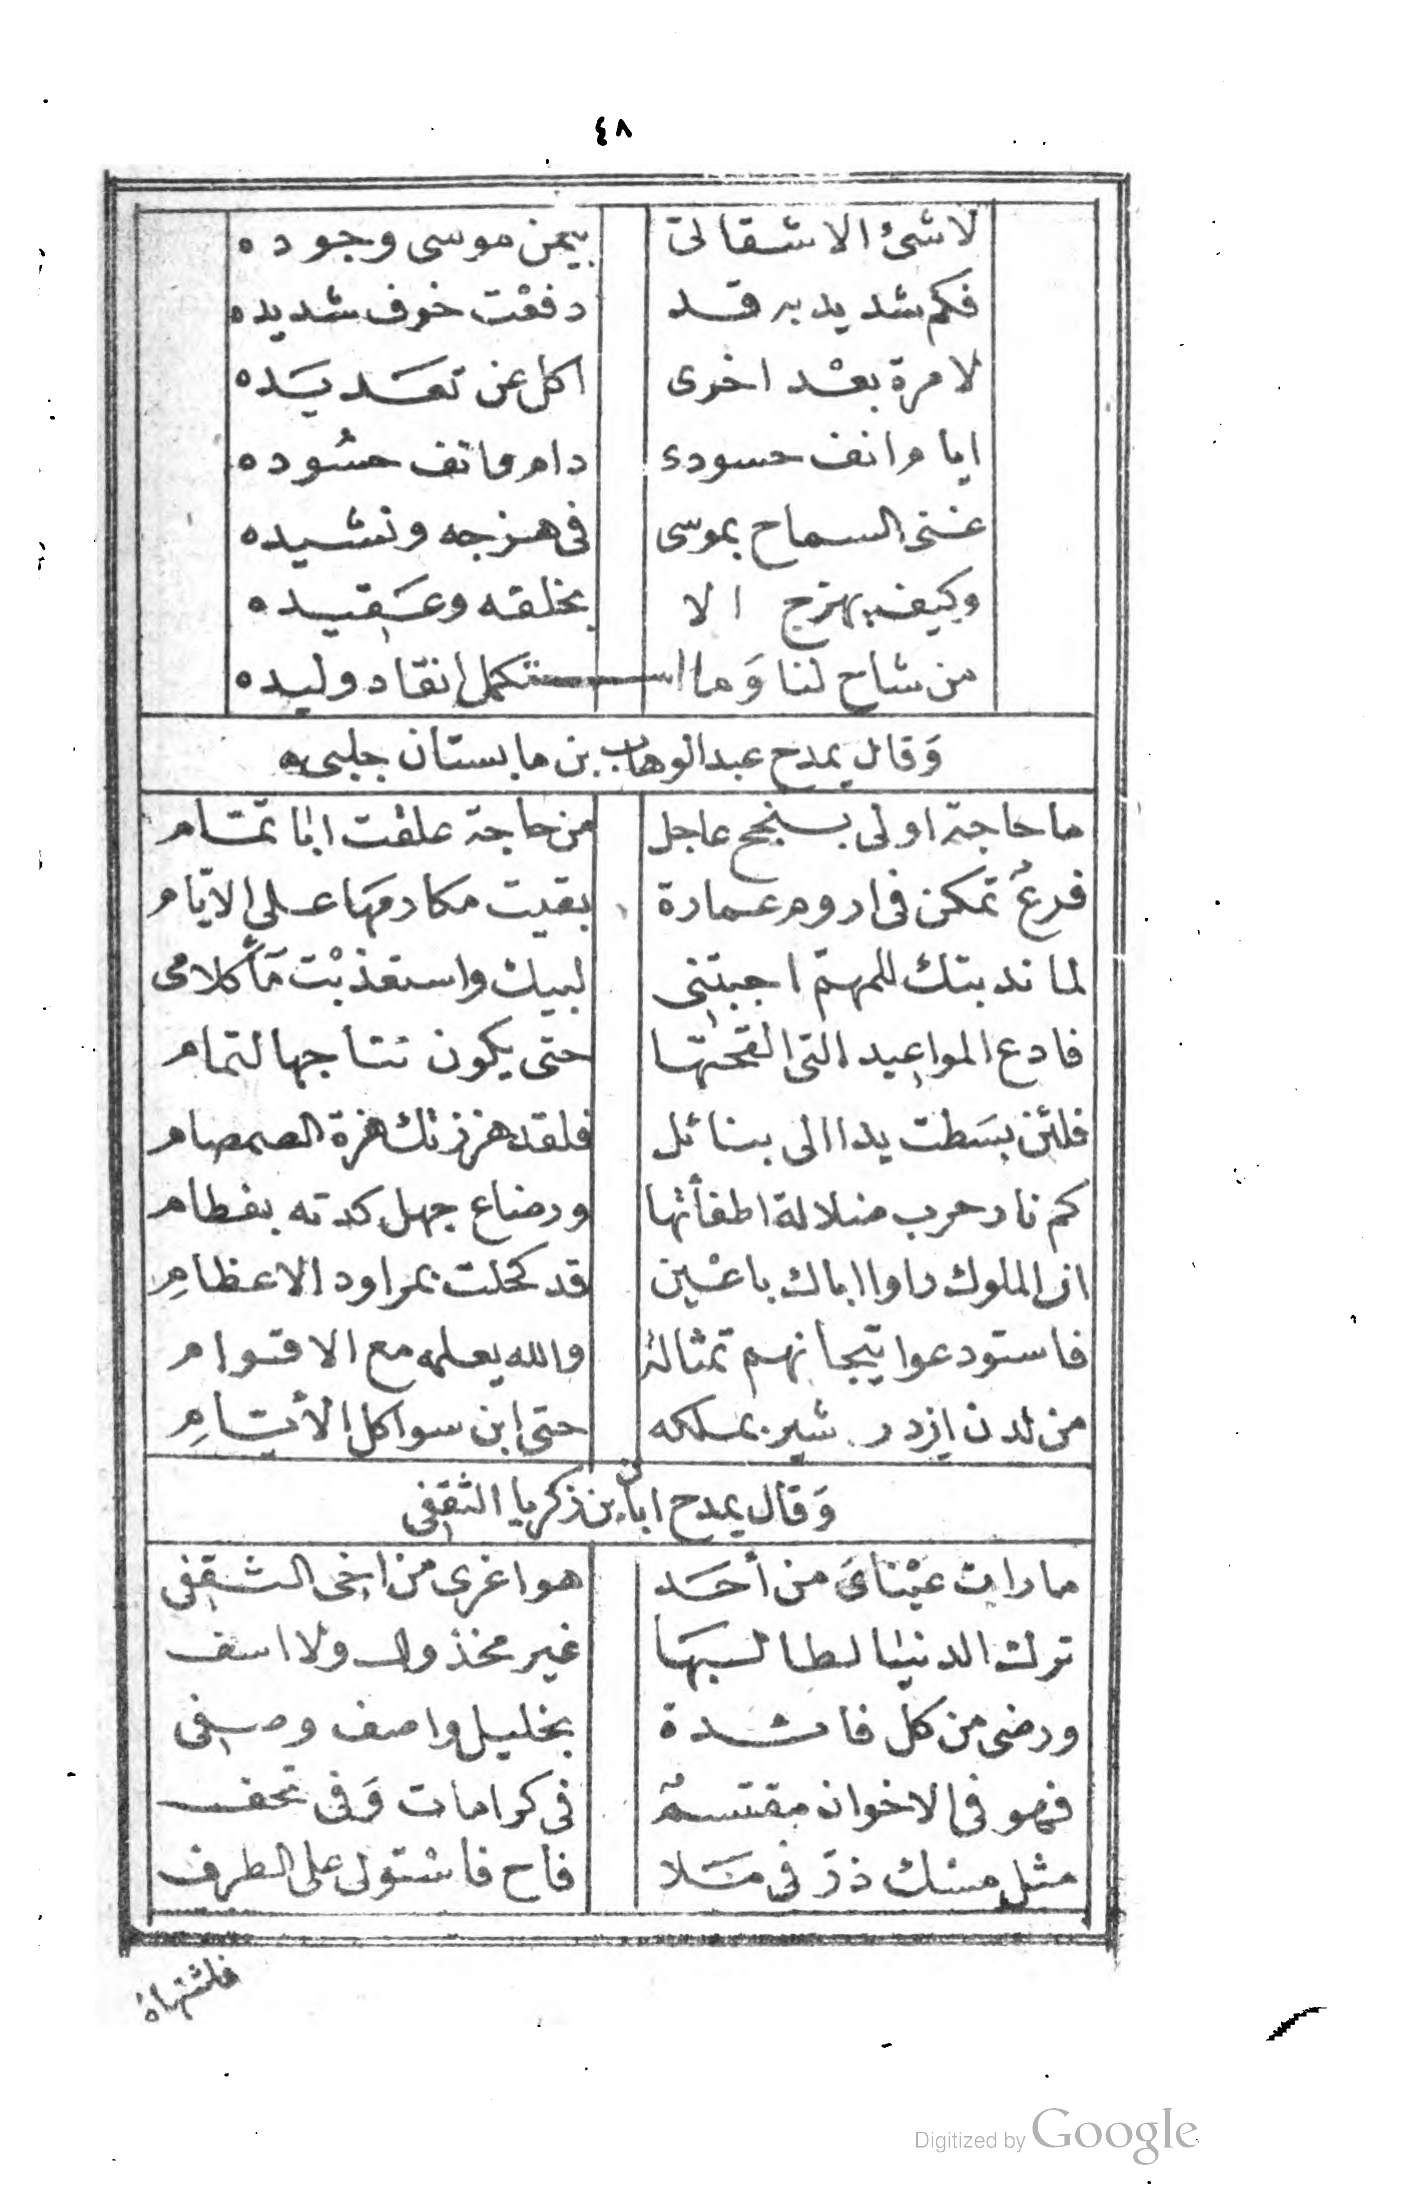 ٤٨
لاشئ الا شقالى بيمن موسى وجوده
فكم شديد به قد دفعت خوف شديده
لا مرة بعد اخرى اكل عن تعديده
ايام انف حسودى دام وانف حسوده
غنى السماح بموسى فى هزجه ونشيده
وكيف يهزج الا بخلقه وعقيده
من شاح لنا وما استكمل انقاد وليده
وقال يمدح عبد الوهاب بن مابستان جلبى
ما حاجة اولى بنجح عاجل من حاجة علقت ابا تمّام
فرعٌ تمكن فى اروم عمارة بقيت مكارمها على الايّام
لما ندبتك للمهمّ اجبتنى لبيك واستعذبْت مأ كلامى
فادع المواعيد التى القحتها حتى يكون نتاجها لتمام
فلئن بسَطت يدا الى بنائل فلقد هززتك هزة الصمصام
كم نار حرب ضلالة اطفأتها ورضاع جهل كدته بفطام
ان الملوك راوا اباك باعين قد كحلت بمراود الاعظامِ
فاستودعوا تيجانهم تمثالهُ والله يعلمه مع الاقوام
من لدن ازدرشير بملكه حتى ابن سوا كل الأيتامِ
وقال يمدح ابان بن زكريا الثقفى
ما رات عيْناىَ من أحَد هوا غرى من اخى الثقفى
ترك الدنيا لطالبهَا غير مخذول ولا اسف
ورضى من كل فائدة بخليل واصف وصفى
فهو فى الاخوان مقتسمٌ فى كرامات وَفى تحف
مثل مسْك ذرّ فى مَلا فاح فاسْتولى على الطرف
فلشتهاهُ
Digitized by Google